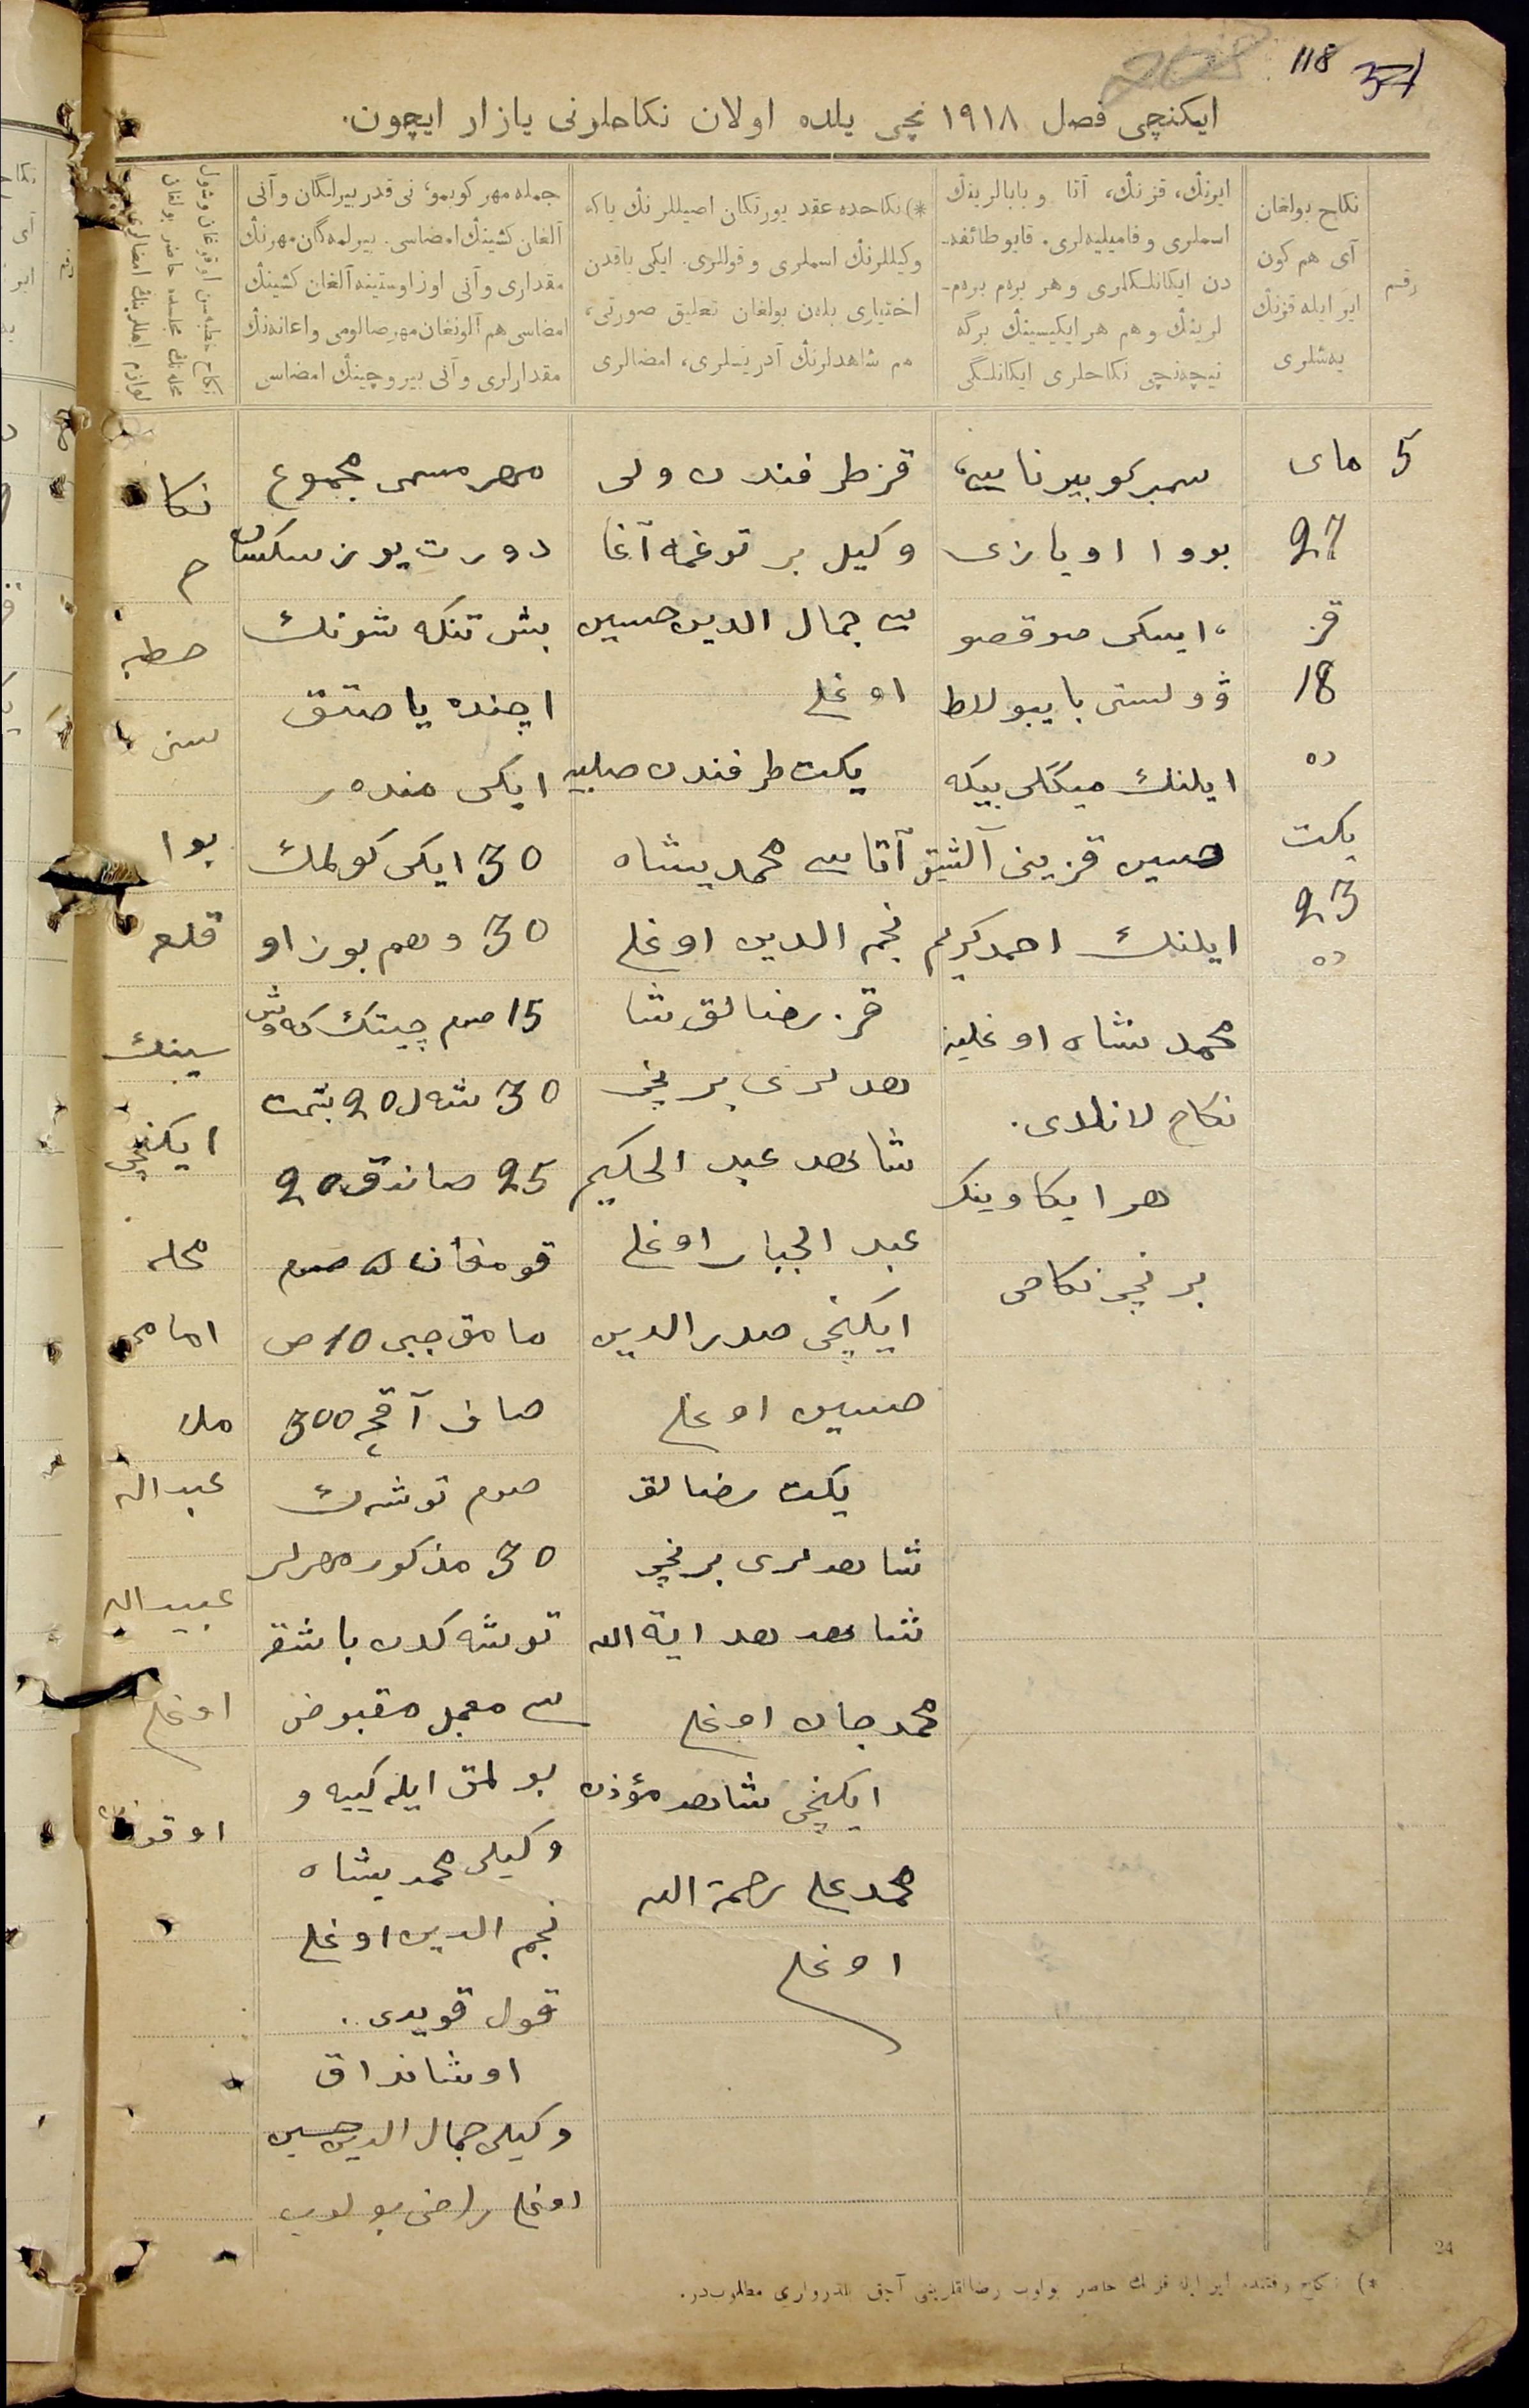 118
ایکنچی فصل ۱۹۱۸ نچی یلده اولان نکاحلرنی یازار ایچون.
رقم
نکاح بولغان
آی هم کون
ایر ایله قزنڭ
یەشلری
ایرنڭ، قزنڭ، آتا و بابالرینڭ
اسملری و فامیلیەلری. قایو طائفه-
دن ایکانلکلری و هر برەم برەم-
لرینڭ و هم هر ایکیسینڭ برگه
نیچەنچی نکاحلری ایکانلگی
*) نکاحده عقد یورتکان اصیللرنڭ یاکه
وکیللرنڭ اسملری و قوللری. ایکی یاقدن
اختیاری بلەن بولغان تعلیق صورتی،
هم شاهدلرنڭ آدریسلری، امضالری
جمله مهر کوبمۆ، نی قدر بیرلگان و آنی
آلغان کشینڭ امضاسی. بیرلمەگان مهرنڭ
مقداری و آنی اوز اوستینه آلغان کشینڭ
امضاسی هم آلونغان مهر صالومی و اعانەنڭ
مقدارلری و آنی بیروچینڭ امضاسی
نکاح خطبەسن اوقوغان و شول
مجلسده حاضر بولغان
5
مای
27
قز
18
ده
یکت
23
ده
سمبر کوبیرناسی،
بووا اویازی
، ایسکی صوقصو
ڤولستی بایبولاط
ایلنڭ میڭلی بیکه
حسین قزینی آلشیق
ایلنڭ احمدکریم
محمدشاه اوغلینه
نکاح لانلدی.
هر ایکاوینڭ
برنچی نکاحی
قز طرفندن ولی
وکیل بر توغمه آغا
سی جمال الدین حسین
اوغلی
یکت طرفندن صلبیه
آتاسی محمدیشاه
نجم الدین اوغلی
قز رضالق شا
هدلری برنچی
شاهد عبد الحکیم
عبد الجبار اوغلی
ایکنچی صدر الدین
حسین اوغلی
یکت رضالق
شاهدلری برنچی
شاهد هدایة الله
محمدجان اوغلی
ایکنچی شاهد مؤذن
محمدعلی رحمة الله
اوغلی
مهر مسمی مجموع
دورت یوز سکسان
بش تنکه شونڭ
اچنده یاصتق
ایکی منده ر
30 ایکی کولمك
30 وهم بوزاو
15 صوم چیتك که وش
30 شەل 20 بتمت
25 صاندق 20
قومغان 5 صوم
مامق جبی 10 ص
صاف آقچه 300
صوم توشەك
30 مذکور مهرلر
توشەکدن باشقه
سی معجل مقبوض
بولمق ایله کییه و
وکیلی محمدیشاه
نجم الدین اوغلی
قول قویدی..
اوشانداق
وکیلی جمال الدین حسین
اوغلی راضی بولوب
نکا
ح
خطبه
سنی
بوا
قلعه
سینڭ
ایکنچی
محله
امامی
ملا
عبدالله
عبیدالله
اوغلی
اوقودی
24
*) نکاح وقتنده ایر ایله قزنڭ حاضر بولوب رضالقلرینی آچق بلدرولری مطلوبدر.